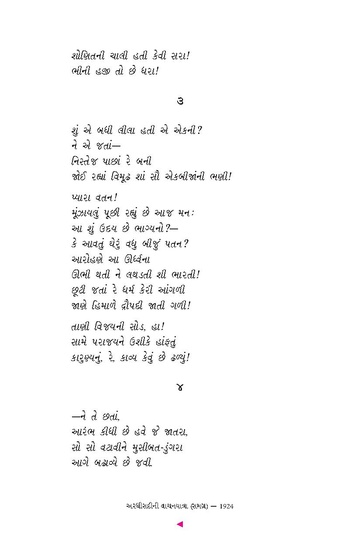 શોણિતની ચાલી હતી કેવી સરા!
ભીની હજી તો છે ધરા!
૩
શું એ બધી લીલા હતી એ એકની?
ને એ જતાં—
નિસ્તેજ પાછાં રે બની
જોઈ રહ્યાં વિમૂઢ શાં સૌ એકબીજાંની ભણી!
પ્યારા વતન!
મૂંઝાયલું પૂછી રહ્યું છે આજ મનઃ
આ શું ઉદય છે ભાગ્યનો?—
કે આવતું ઘેરું વધુ બીજું પતન?
આરોહણે આ ઊર્ધ્વના
ઊભી થતી ને લથડતી શી ભારતી!
છૂટી જતાં રે ધર્મ કેરી આંગળી
જાણે હિમાળે દ્રૌપદી જાતી ગળી!
તાણી વિજયની સોડ, હા!
સામે પરાજયને ઉશીકે હાંફતું
કારુણ્યનું, રે, કાવ્ય કેવું છે ઢળ્યું!
૪
—ને તે છતાં,
આરંભ કીધી છે હવે જે જાતરા,
સો સો વટાવીને મુસીબત-ડુંગરા
આગે બઢાવ્યે છે જવી.
અરધીસદીની વાચનયાત્રા (સમગ્ર) — 1924